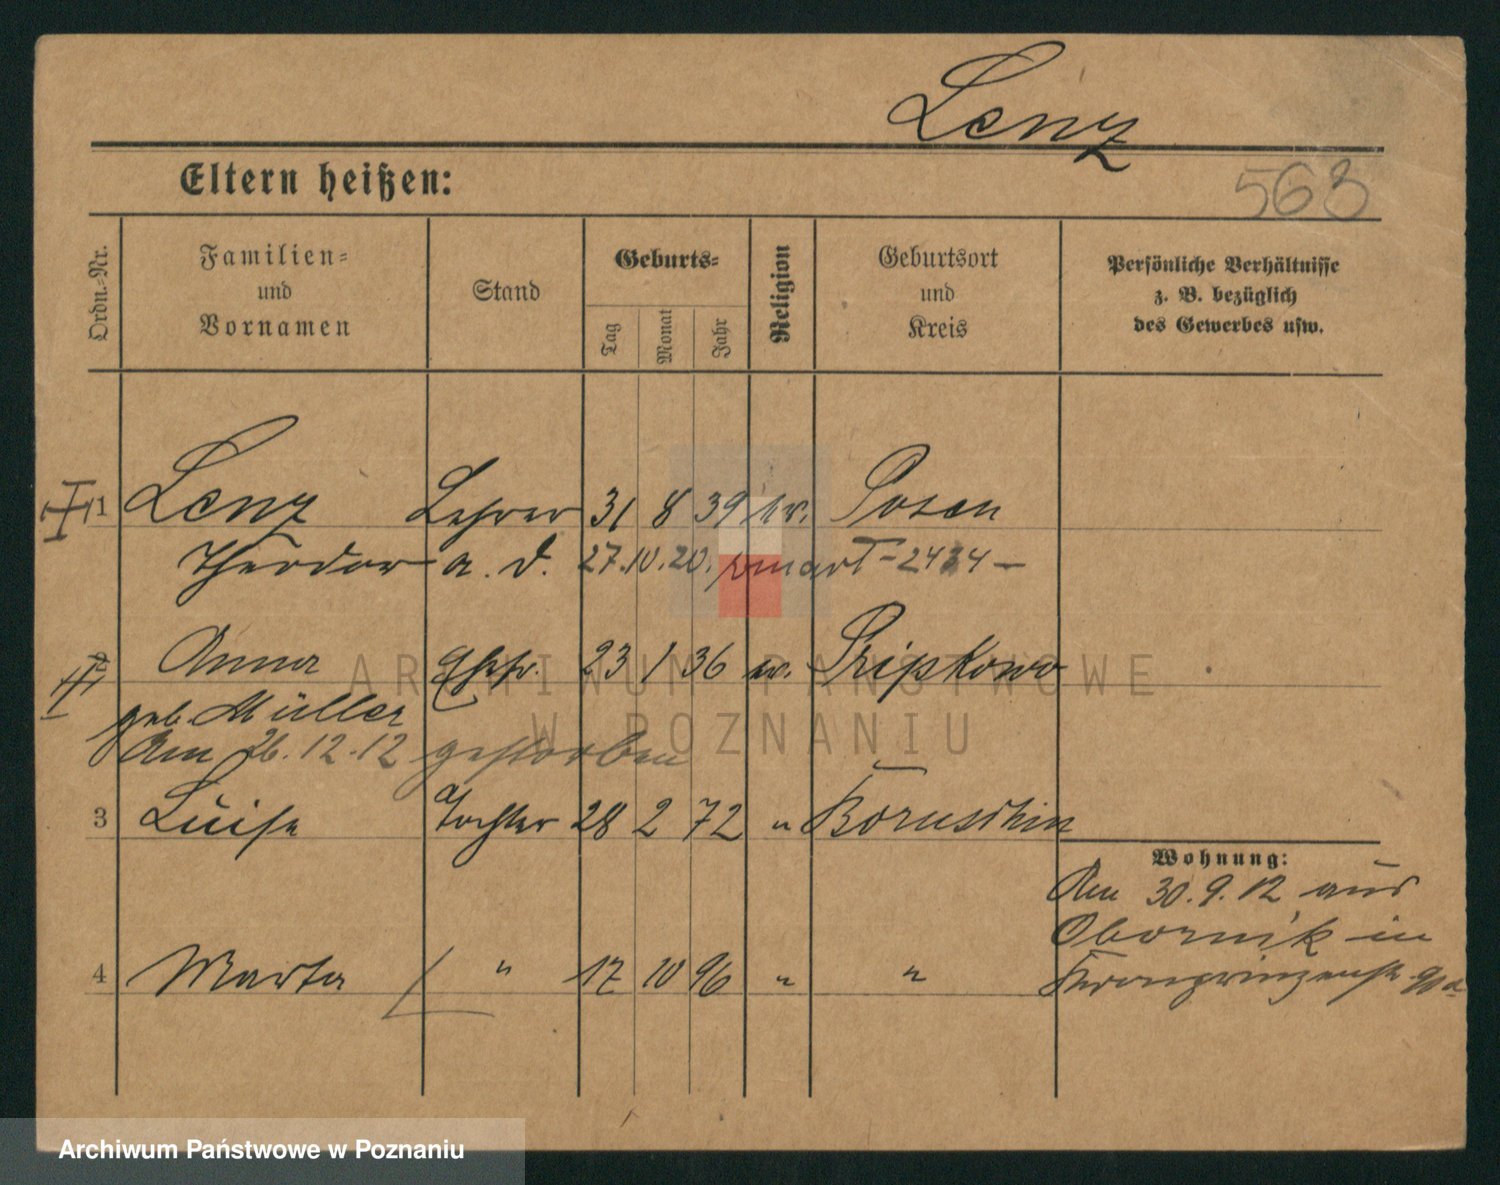 Lenz
Eltern heißen:
563
Ordn.-Nr.
Familien- und Vornamen
Stand
Geburts-
Tag
Monat
Jahr
Religion
Geburtsort und Kreis
Persönliche Verhältnisse z. B. bezüglich des Gewerbes usw.
1 Lenz Lehrer 31 8 39 ev. Posen
Theodor a. D. 27.10.20. -2434-
2 Anna Ehefr. 23 1 36 ev. Pripkowo
geb. Müller
Am 26.12.12 gestorben
3 Luise Tochter 28 2 72 " Boruschin
Wohnung:
Am 30.9.12 aus
Obornik in
Kronprinzenstr. 90a
4 Marta " 17 10 96 " "
ARCHIWUM PAŃSTWOWE
W POZNANIU
Archiwum Państwowe w Poznaniu